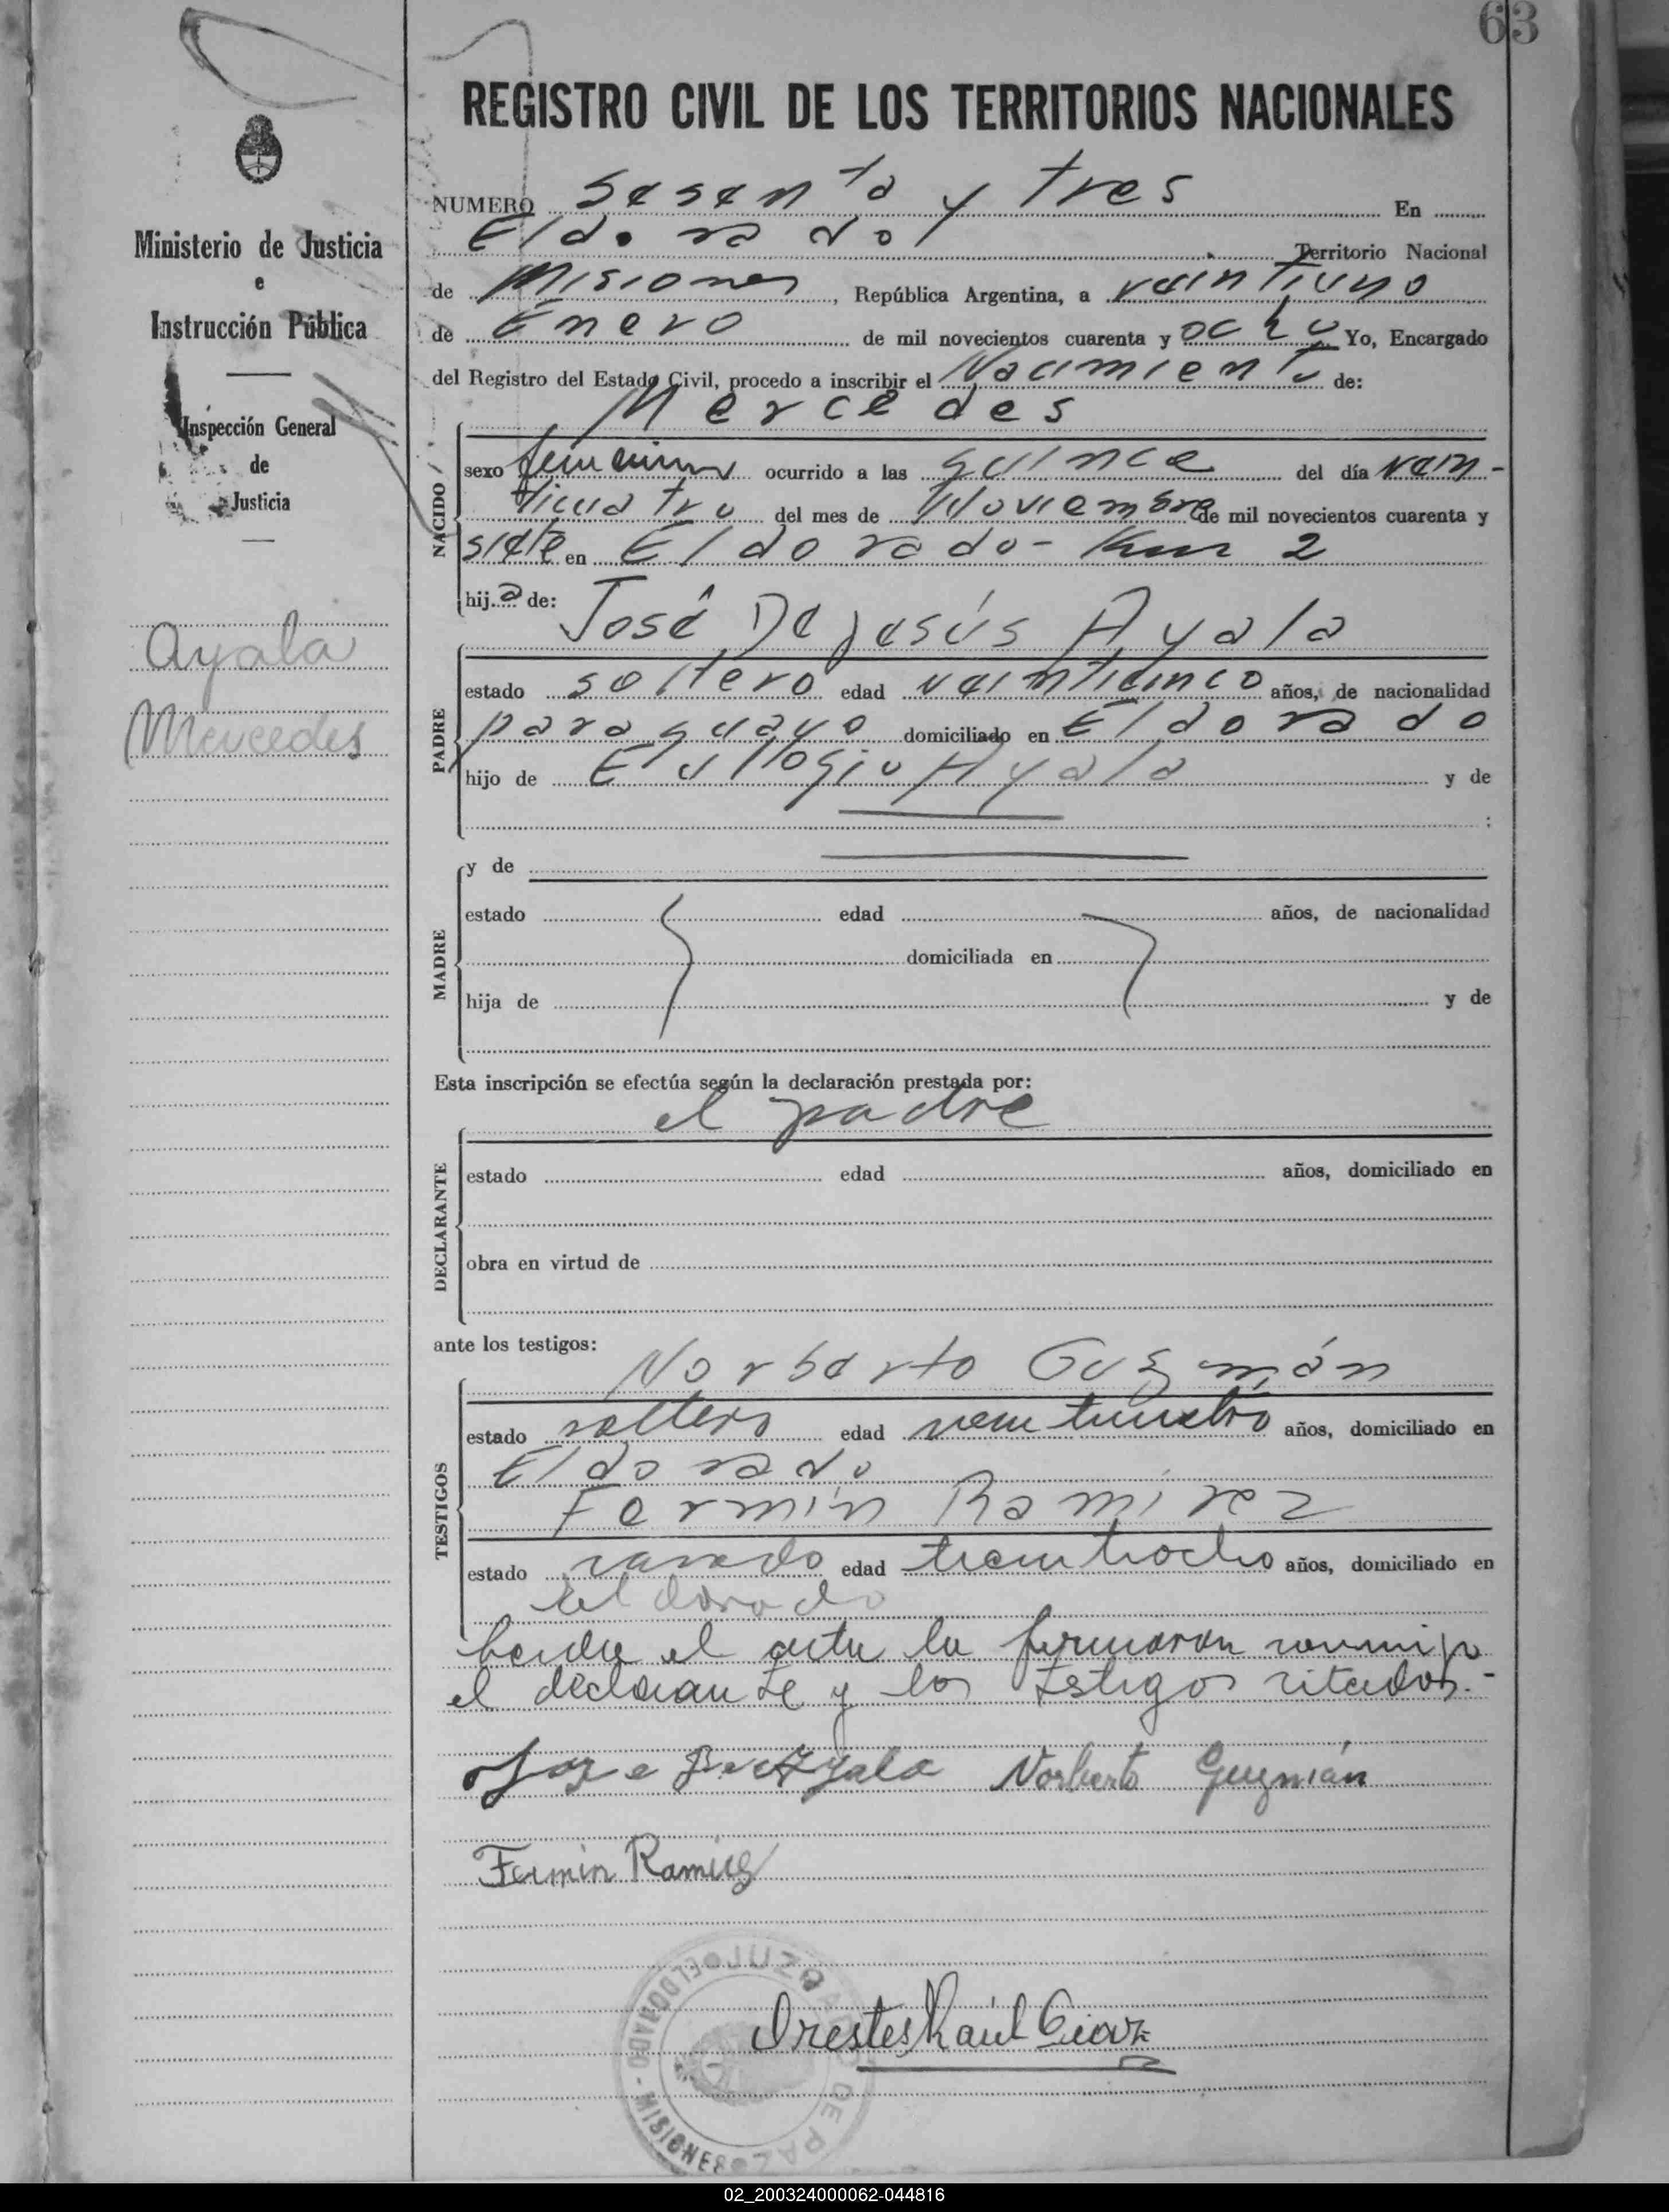 63
REGISTRO CIVIL DE LOS TERRITORIOS NACIONALES
Ministerio de Justicia
e
Instrucción Pública
Inspección General
de
Justicia
Ayala
Mercedes
NUMERO Sesenta y tres En
Eldorado Territorio Nacional
de Misiones, República Argentina, a veintiuno
de Enero de mil novecientos cuarenta y ocho Yo, Encargado
del Registro del Estado Civil, procedo a inscribir el Nacimiento de:
Mercedes
NACIDO
sexo femenino ocurrido a las quince del día vein-
ticuatro del mes de Noviembre de mil novecientos cuarenta y
siete en Eldorado - Km 2
hija de:
José De Jesús Ayala
PADRE
estado soltero edad veinticinco años, de nacionalidad
paraguayo domiciliado en Eldorado
hijo de Eullogio Ayala y de
:
MADRE
y de
estado edad años, de nacionalidad
domiciliada en
hija de y de
Esta inscripción se efectúa según la declaración prestada por:
el padre
DECLARANTE
estado edad años, domiciliado en
obra en virtud de
ante los testigos:
Norberto Guzmán
TESTIGOS
estado soltero edad veinticuatro años, domiciliado en
Eldorado
Fermín Ramírez
estado casado edad treintiocho años, domiciliado en
Eldorado
el acta la firmaron conmigo
el declarante y los testigos citados.-
Jose De Ayala Norberto Guzmán
Fermin Ramirez
JUZGADO DE PAZ
ELDORADO - MISIONES
Orestes Raúl
02_200324000062-044816